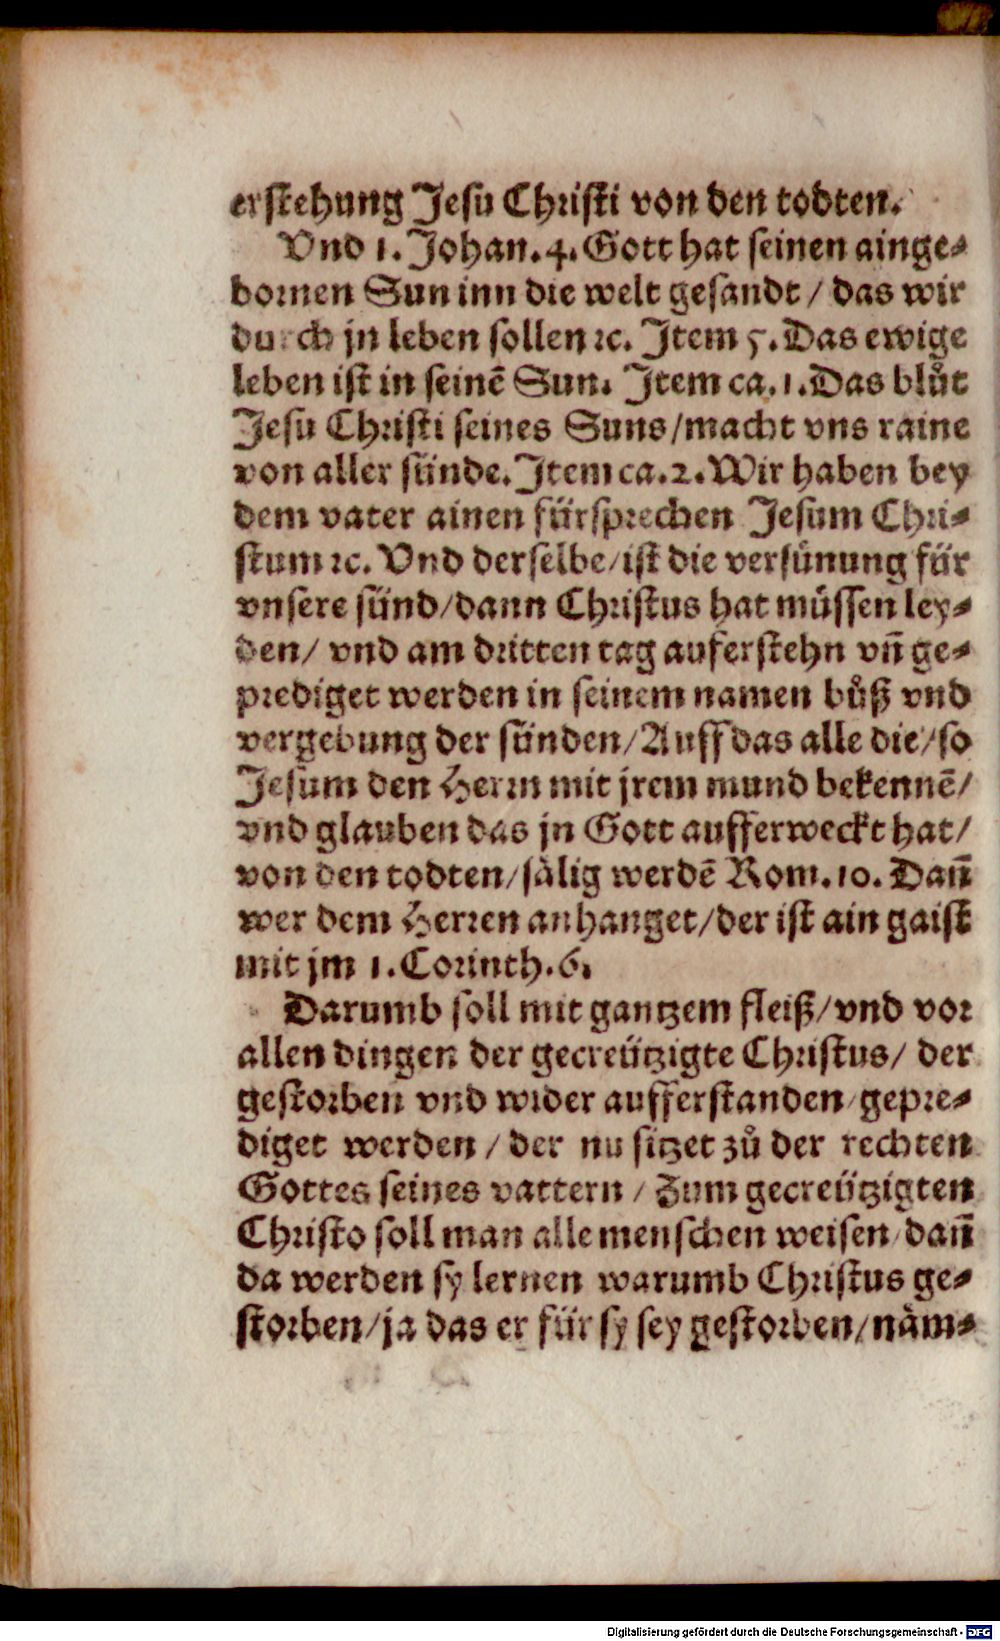 erstehung Jesu Christi von den todten.
Vnd 1. Johan. 4. Gott hat seinen ainge⸗
bornen Sun inn die welt gesandt / das wir
durch jn leben sollen ꝛc. Item 5. Das ewige
leben ist in seinē Sun. Item ca. 1. Das blůt
Jesu Christi seines Suns / macht vns raine
von aller sünde. Item ca. 2. Wir haben bey
dem vater ainen fürsprechen Jesum Chri⸗
stum ꝛc. Vnd derselbe / ist die versünung für
vnsere sünd / dann Christus hat müssen ley⸗
den / vnd am dritten tag auferstehn vn̄ ge⸗
prediget werden in seinem namen bůß vnd
vergebung der sünden / Auff das alle die / so
Jesum den Herrn mit jrem mund bekennē /
vnd glauben das jn Gott aufferweckt hat /
von den todten / sälig werdē Rom. 10. Dan̄
wer dem Herren anhanget / der ist ain gaist
mit jm 1. Corinth. 6.
Darumb soll mit gantzem fleiß / vnd vor
allen dingen der gecreützigte Christus / der
gestorben vnd wider aufferstanden / gepre⸗
diget werden / der nu sitzet zů der rechten
Gottes seines vattern / Zum gecreützigten
Christo soll man alle menschen weisen / dan̄
da werden sy lernen warumb Christus ge⸗
storben / ja das er für sy sey gestorben / näm⸗
Digitalisierung gefördert durch die Deutsche Forschungsgemeinschaft - DFG